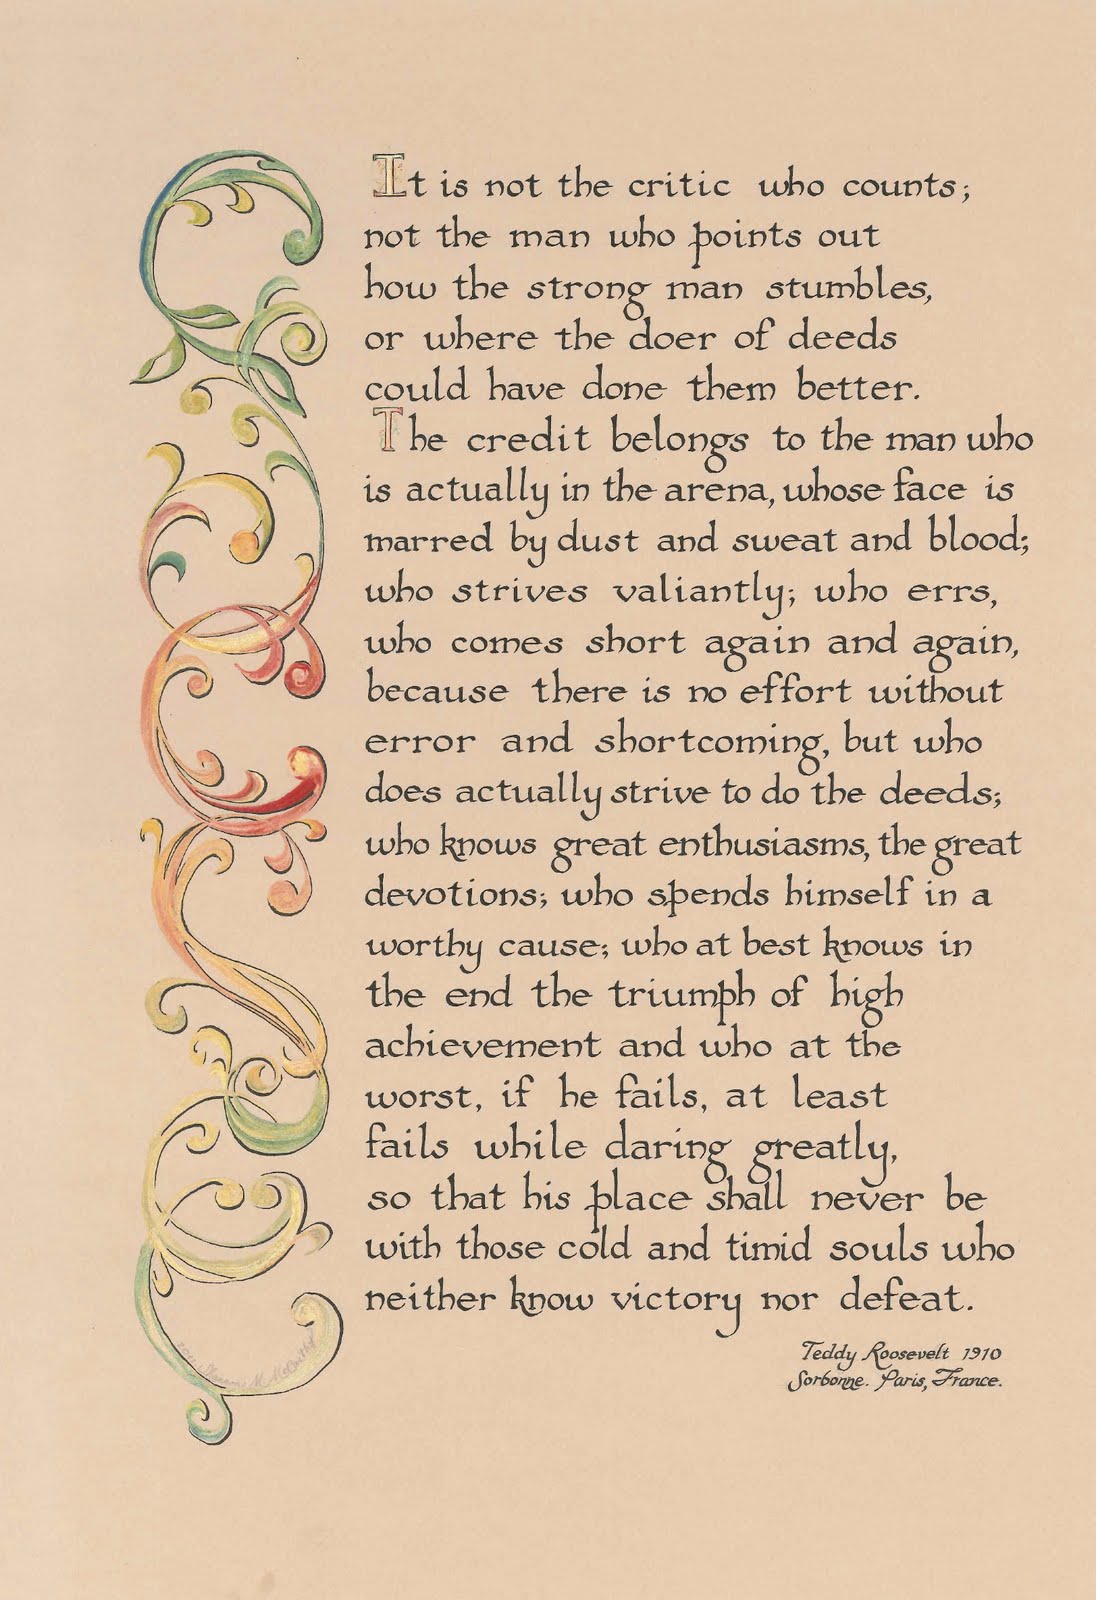 It is not the critic who counts;
not the man who points out
how the strong man stumbles,
or where the doer of deeds
could have done them better.
The credit belongs to the man who
is actually in the arena, whose face is
marred by dust and sweat and blood;
who strives valiantly; who errs,
who comes short again and again,
because there is no effort without
error and shortcoming, but who
does actually strive to do the deeds;
who knows great enthusiasms, the great
devotions; who spends himself in a
worthy cause; who at best knows in
the end the triumph of high
achievement and who at the
worst, if he fails, at least
fails while daring greatly,
so that his place shall never be
with those cold and timid souls who
neither know victory nor defeat.
Teddy Roosevelt 1910
Sorbonne. Paris, France.
M. McCarthy